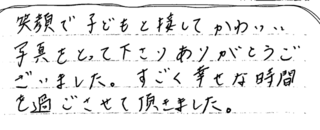 笑顔で子どもと接してかわいい
写真をとって下さりありがとうご
ざいました。すごく幸せな時間
を過ごさせて頂きました。